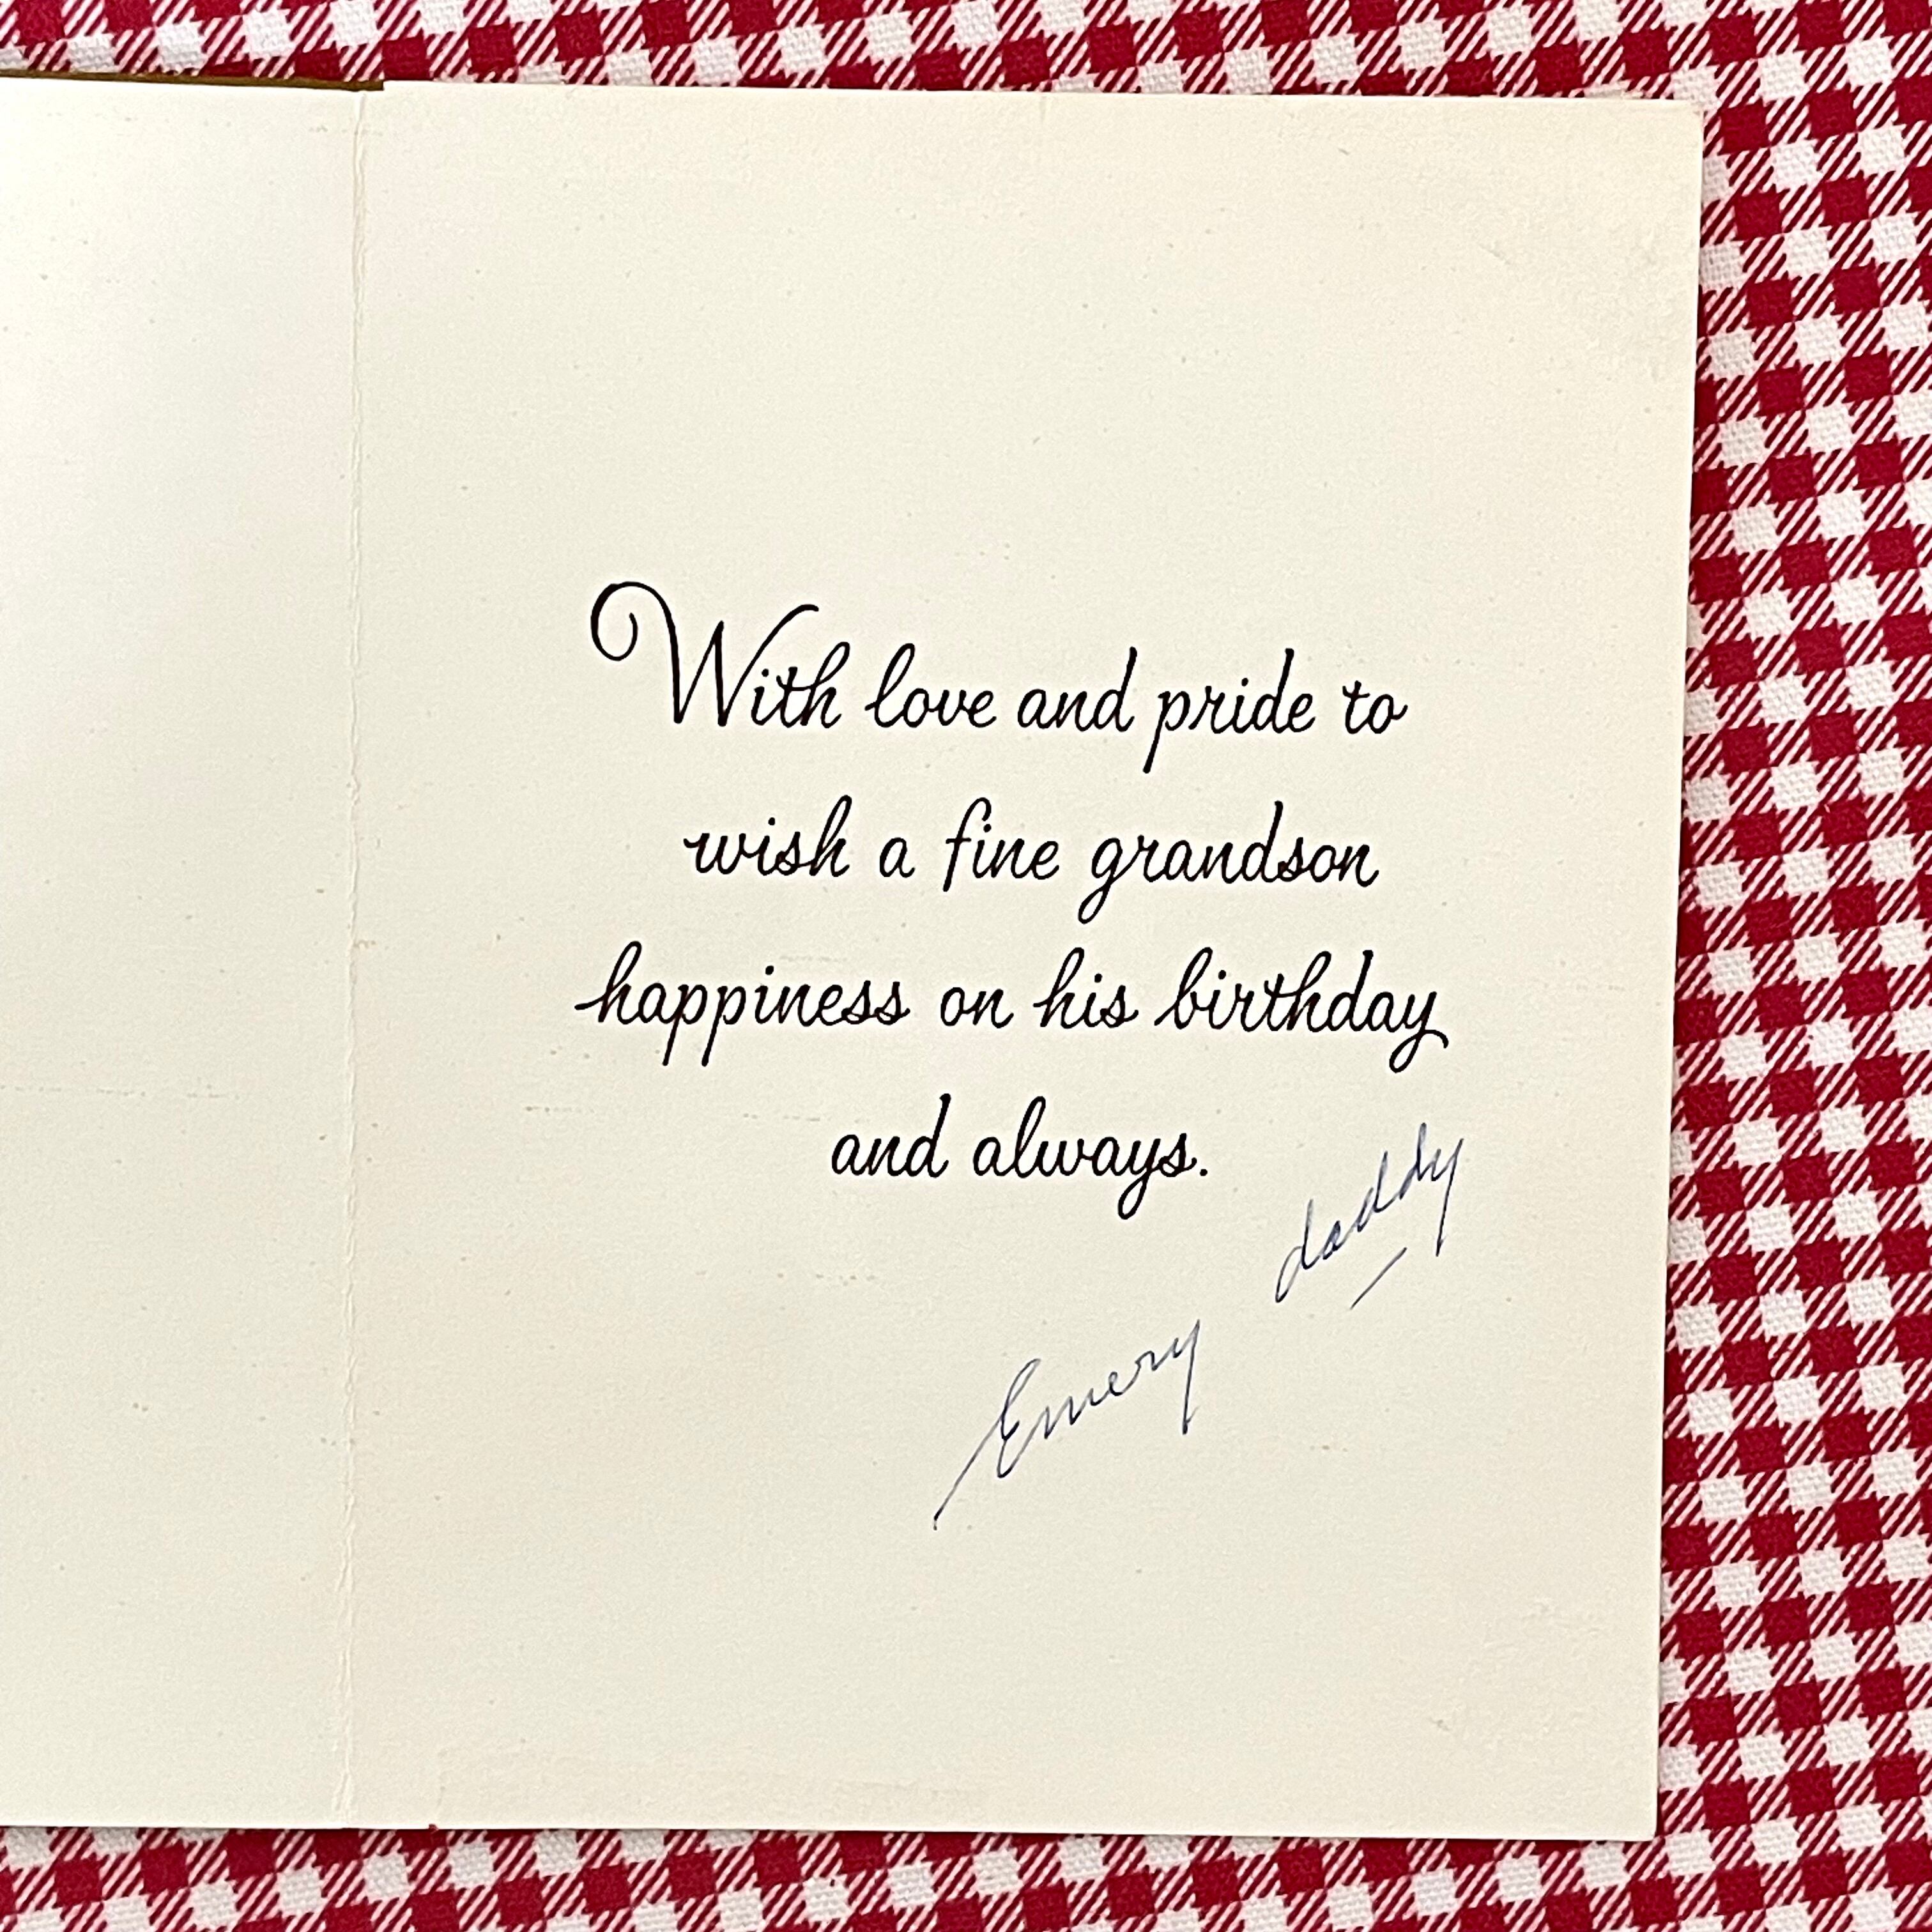 With love and pride to
wish a fine grandson
happiness on his birthday
and always.
Emery daddy